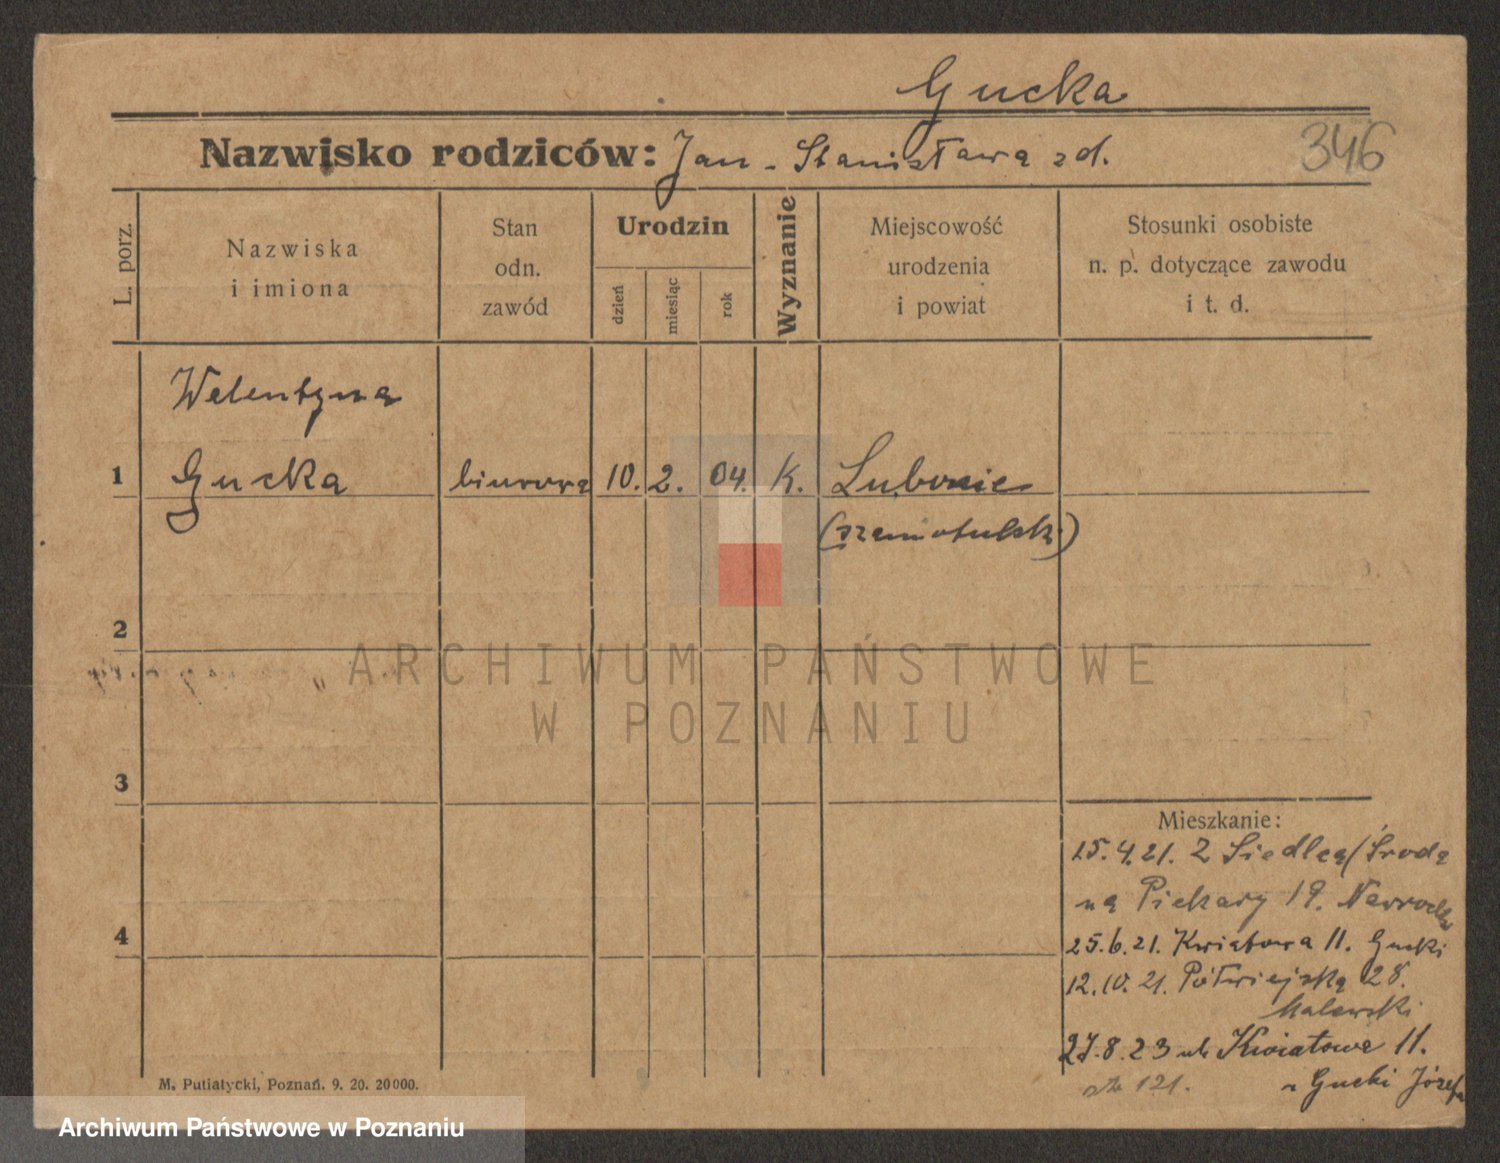 Gucka
Nazwisko rodziców: Jan - Stanisława zd.
346
L. porz.
Nazwiska
i imiona
Stan
odn.
zawód
Urodzin
dzień
miesiąc
rok
Wyznanie
Miejscowość
urodzenia
i powiat
Stosunki osobiste
n. p. dotyczące zawodu
i t. d.
Walentyna
1 Gucka biurowa 10. 2. 04. K. Lubonie
(szamotulski)
2
3
Mieszkanie:
15.4.21. Z Siedlca (Środa
na Piekary 19. Nawrocka
4
25.6.21. Kwiatowa 11. Gucki
12.10.21. Półwiejska 28.
Malewski
27.8.23 ul. Kwiatowa 11.
121. u Gucki Józefa
M. Putiatycki, Poznań. 9. 20. 20000.
ARCHIWUM PAŃSTWOWE
W POZNANIU
Archiwum Państwowe w Poznaniu